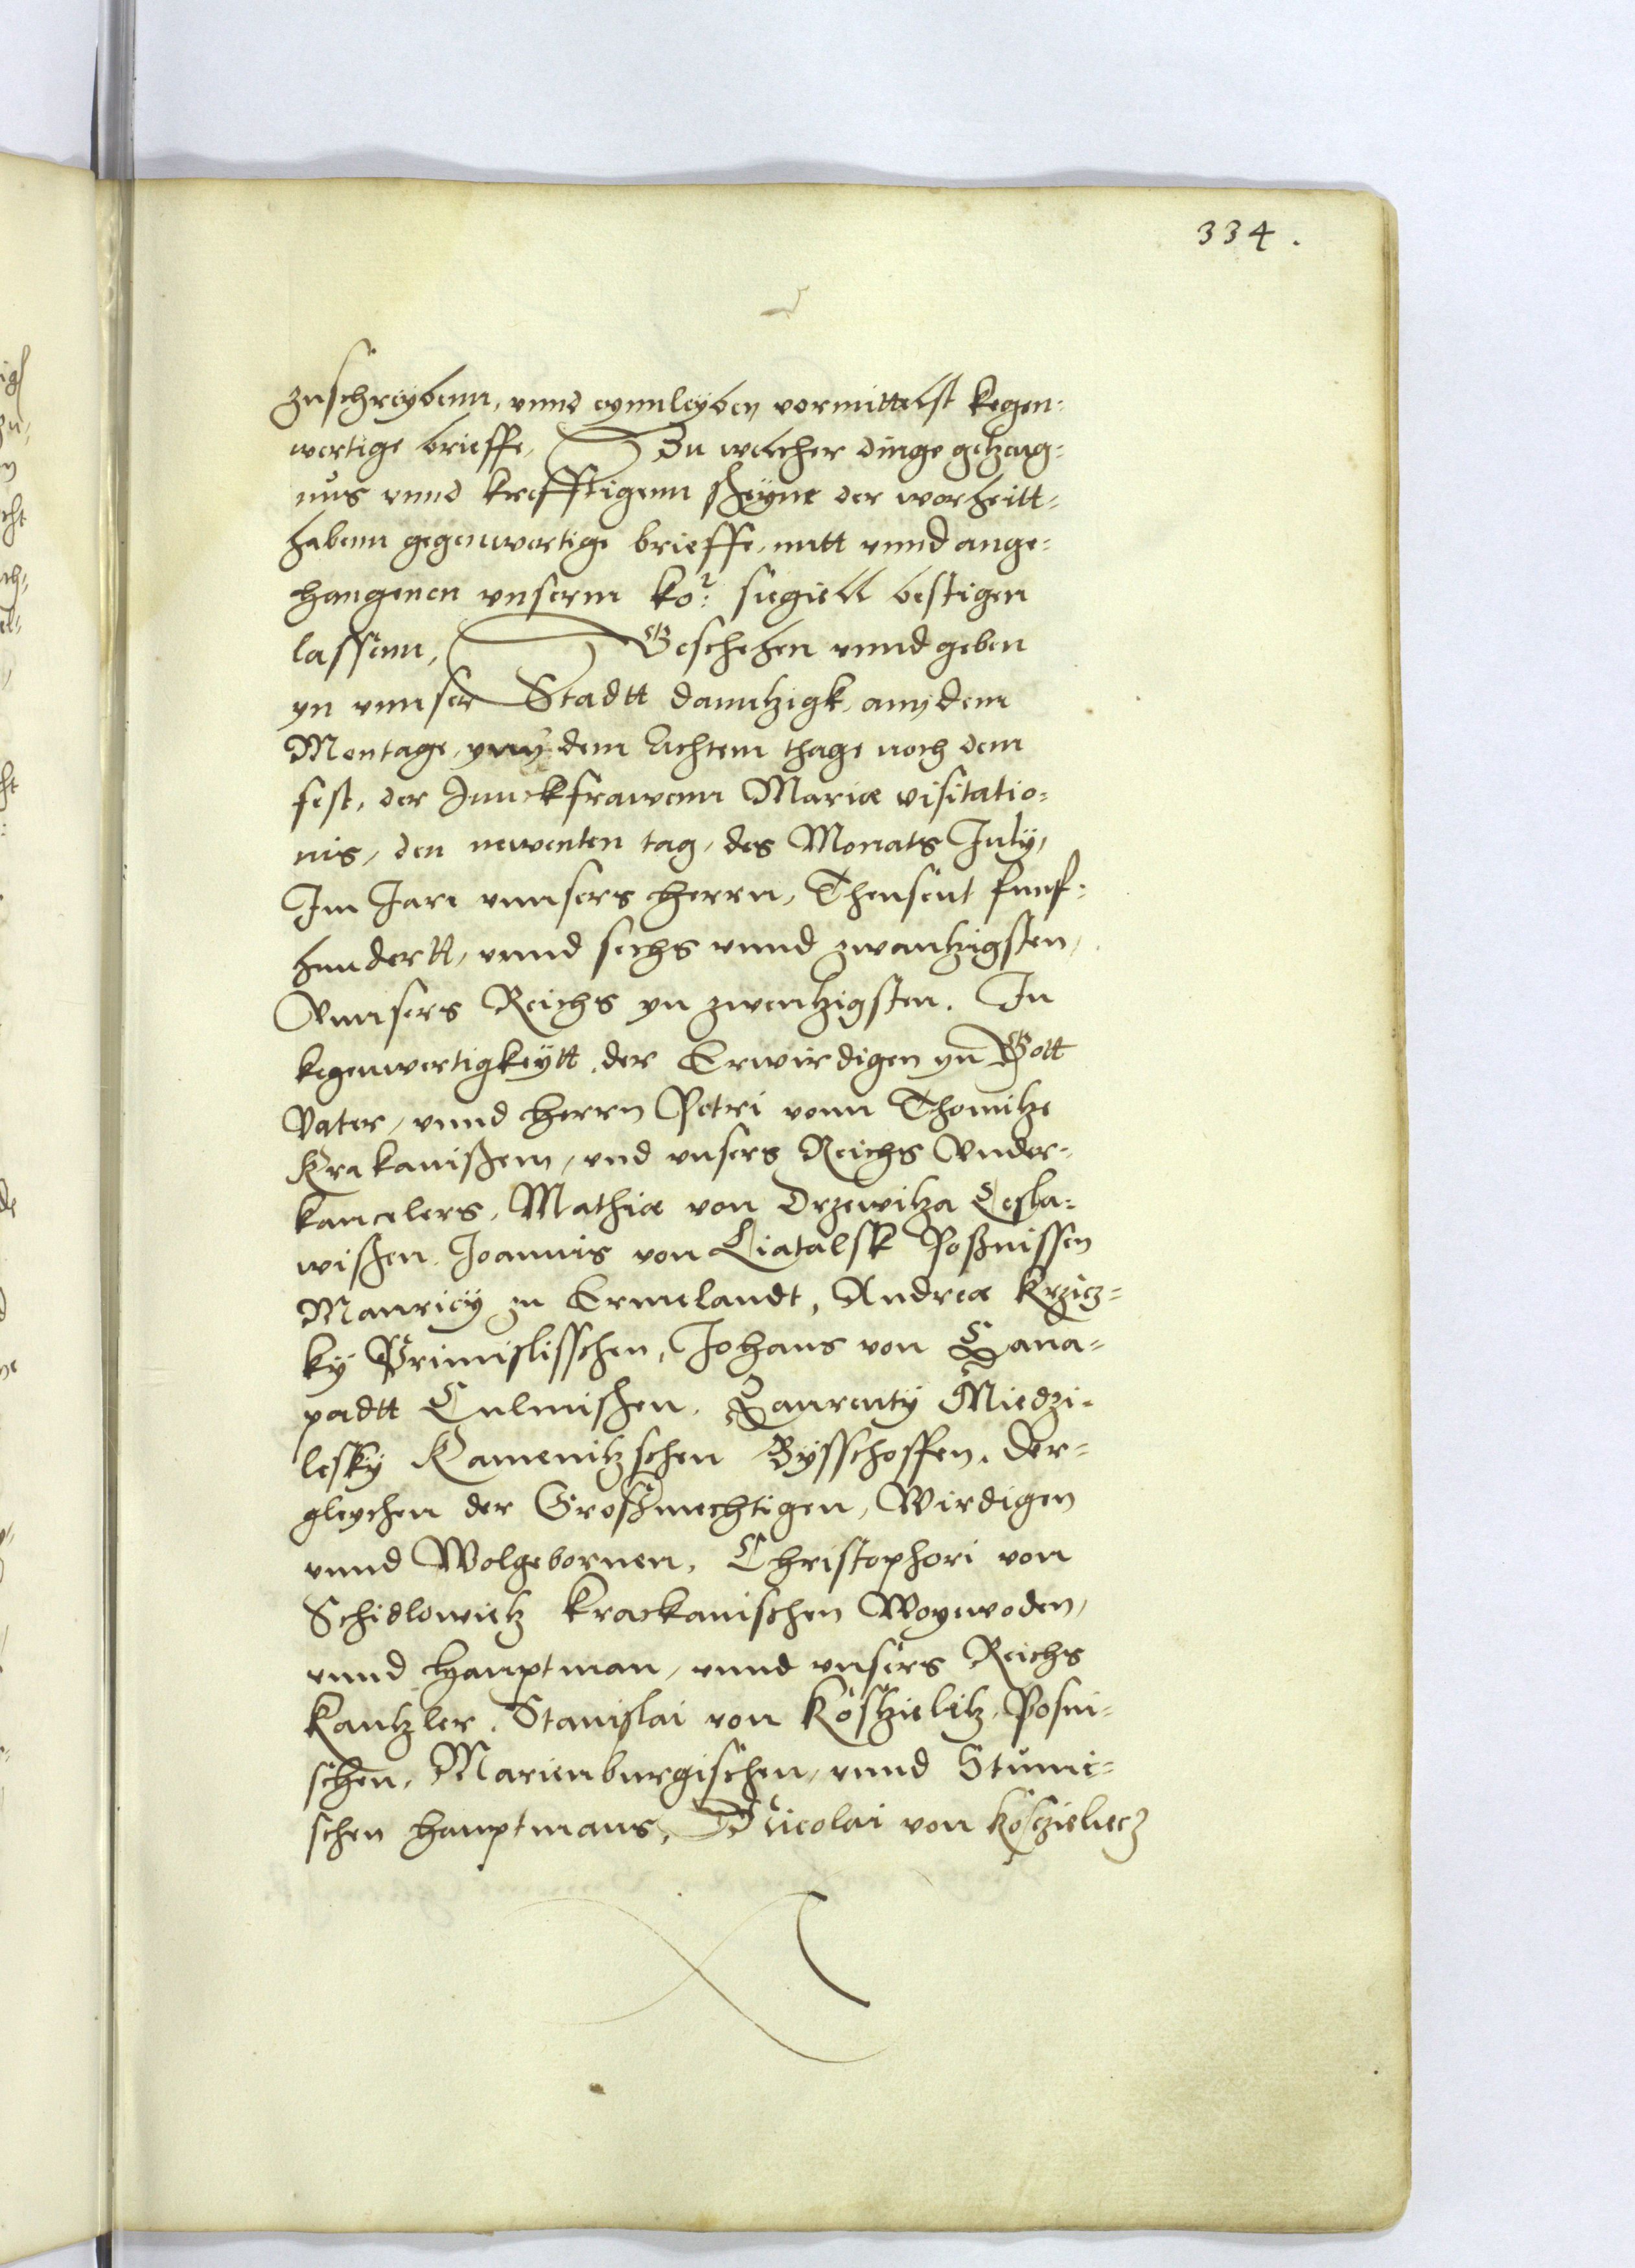 334.
zuschreybenn, vnnd eynnleyben vormittelst kegen:
wertige brieffe, Zu welcher dinge getzeug:
nus vnnd krefftigenn scheyne der warheitt:
habenn gegenwertige brieffe, mitt vnnd ange:
hangenen vnserm kor: siegiell bestigen
lassenn, Geschehen vnnd geben
yn vnnser Stadtt danntzigk, am dem
Montage, ynn dem Achtem thage noch dem
fest, der Junckfrawenn Mariæ visitatio:
nis, den newenten tag, des Monats July,
Im Jare vnnsers herrn, Thausent funf:
hundertt, vnnd sechs vnnd zwantzigsten,
Vnnsers Reichs yn zwentzigsten. In
kegenwertigkeytt der Erwirdigen yn Gott
Vater, vnnd herrn Petri vonn Thomitze
Krakauischen, vnd vnsers Reichs Vnder:
kancelers, Mathiæ von Drzewitza Lesla:
wischen, Joannis von Liatalsk Posznissen
Mauricy zu Ermelandt, Andreæ Krzicz:
ky Primislisschen, Johans von Cana:
padtt Culmischen, Laurenty Miedzi:
lesky Kamenitzschen Bysschoffen, der:
gleychen der Groszmechtigen, Wirdigen
vnnd Wolgebornen, Christophori von
Schidlowietz krackauischen Woywoden,
vnnd hauptman, vnnd vnsers Reichs
Kantzler, Stanislai von Kostzieletz, Posni:
schen, Marienburgischen, vnnd Stumi:
schen hauptmans, Nicolai von kosczieliecz